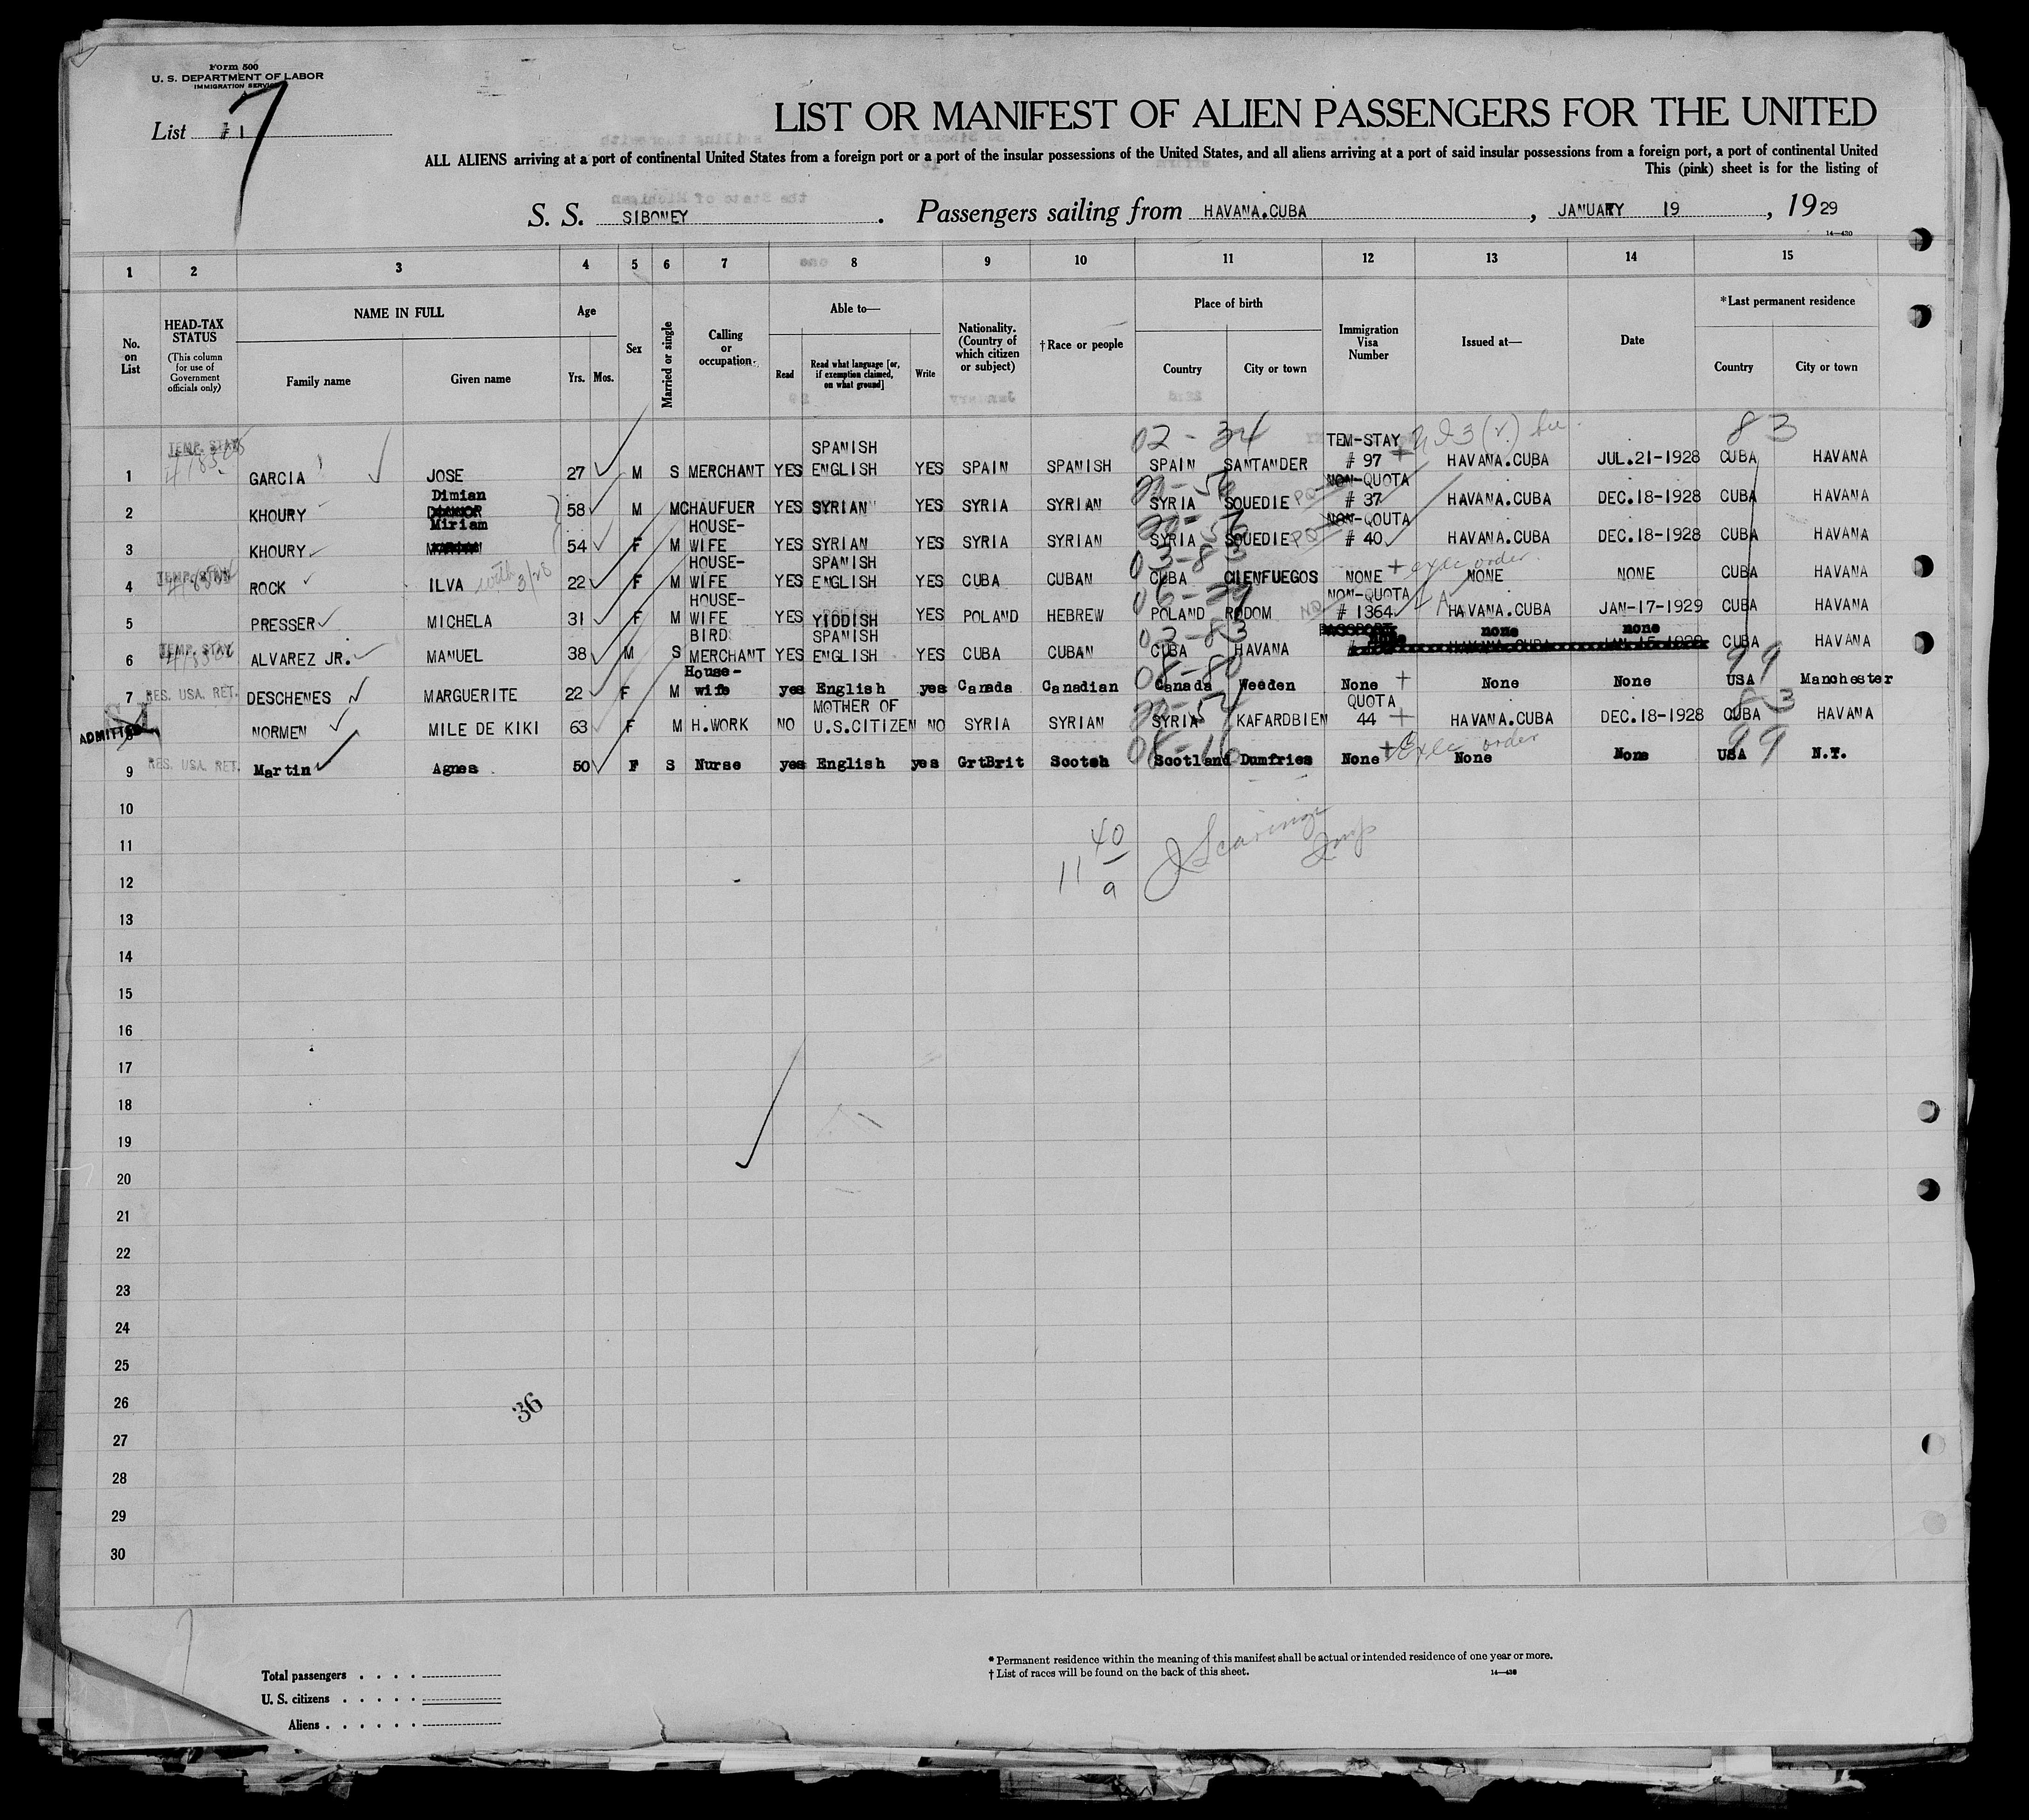 Form 500
U. S. DEPARTMENT OF LABOR
IMMIGRATION SERVICE
List # 1
7
LIST OR MANIFEST OF ALIEN PASSENGERS FOR THE UNITED
ALL ALIENS arriving at a port of continental United States from a foreign port or a port of the insular possessions of the United States, and all aliens arriving at a port of said insular possessions from a foreign port, a port of continental United
This (pink) sheet is for the listing of
S. S. SIBONEY. Passengers sailing from HAVANA.CUBA, JANUARY 19, 1929
14—430
1 2 3 4 5 6 7 8 9 10 11 12 13 14 15
No. on List
HEAD-TAX STATUS (This column for use of Government officials only)
NAME IN FULL
Family name Given name
Age
Yrs. Mos.
Sex
Married or single
Calling or occupation
Able to—
Read Read what language [or, if exemption claimed, on what ground] Write
Nationality. (Country of which citizen or subject)
† Race or people
Place of birth
Country City or town
Immigration Visa Number
Issued at—
Date
* Last permanent residence
Country City or town
1 TEMP. STAY GARCIA JOSE 27 M S MERCHANT YES SPANISH ENGLISH YES SPAIN SPANISH 02-34 SPAIN SANTANDER TEM-STAY # 97 HAVANA.CUBA JUL.21-1928 83 CUBA HAVANA
2 KHOURY Dimian 58 M M CHAUFUER YES SYRIAN YES SYRIA SYRIAN SYRIA SOUEDIE PQ NON-QUOTA # 37 HAVANA.CUBA DEC.18-1928 CUBA HAVANA
3 KHOURY Miriam 54 F M HOUSE-WIFE YES SYRIAN YES SYRIA SYRIAN SYRIA SOUEDIE PQ NON-QOUTA # 40 HAVANA.CUBA DEC.18-1928 CUBA HAVANA
4 TEMP. STAY ROCK ILVA with 3/20 22 F M HOUSE-WIFE YES SPANISH ENGLISH YES CUBA CUBAN 03-83 CUBA CIENFUEGOS NONE exec order NONE NONE CUBA HAVANA
5 PRESSER MICHELA 31 F M HOUSE-WIFE YES YIDDISH YES POLAND HEBREW POLAND RODOM NQ NON-QUOTA # 1364 HAVANA.CUBA JAN-17-1929 CUBA HAVANA
6 TEMP. STAY ALVAREZ JR. MANUEL 38 M S BIRD MERCHANT YES SPANISH ENGLISH YES CUBA CUBAN 03-83 CUBA HAVANA none none CUBA HAVANA
7 RES. USA. RET. DESCHENES MARGUERITE 22 F M House-wife yes English yes Canada Canadian 08-80 Canada Weeden None None None 99 USA Manchester
8 ADMITTED NORMEN MILE DE KIKI 63 F M H.WORK NO MOTHER OF U.S.CITIZEN NO SYRIA SYRIAN SYRIA KAFARDBIEN QUOTA 44 HAVANA.CUBA DEC.18-1928 83 CUBA HAVANA
9 RES. USA. RET. Martin Agnes 50 F S Nurse yes English yes GrtBrit Scotch Scotland Dumfries None Exec order None None 99 USA N.Y.
10
11 40
12 11 a
13
14
15
16
17
18
19
20
21
22
23
24
25
26
27
28
29
30
36
Total passengers . . . .
U. S. citizens . . . . .
Aliens . . . . . .
* Permanent residence within the meaning of this manifest shall be actual or intended residence of one year or more.
† List of races will be found on the back of this sheet.
14—430